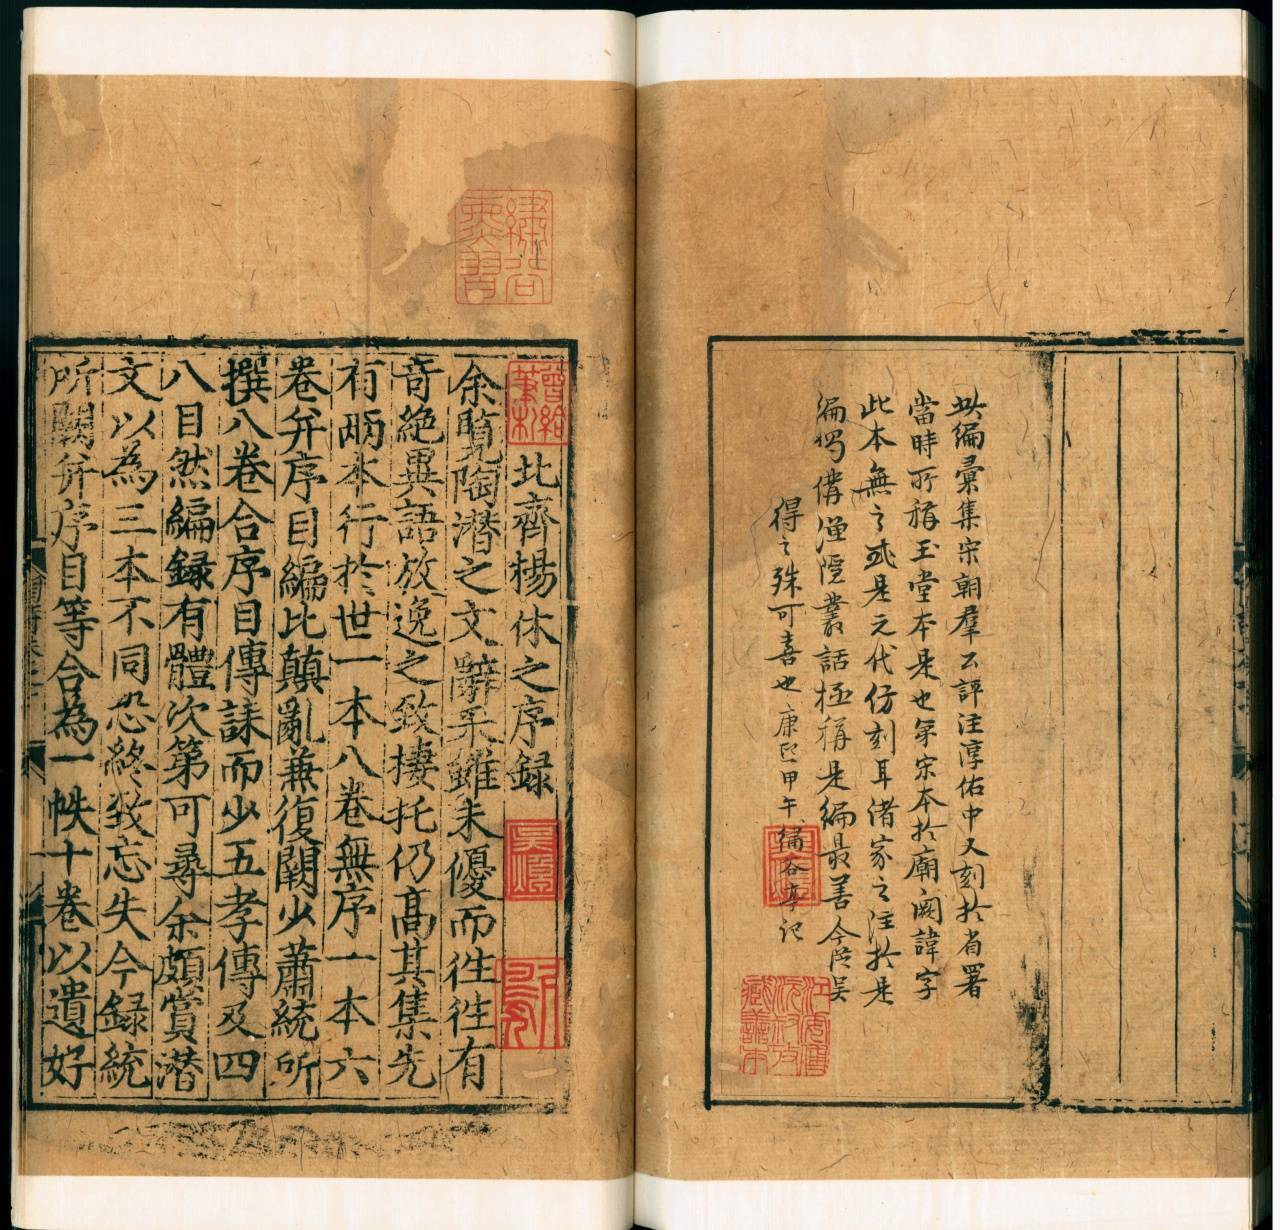 此編彙集宋朝羣公評注淳佑中又刻於省署
當時所稱玉堂本是也第宋本於廟闕諱字
此本無之或是元代仿刻耳諸家之注於是
編獨備漁隱叢話極稱是編最善今從吳
得之殊可喜也康熙甲午繡谷亭記
繡谷
熏習
北齊楊休之序録
余覽陶潜之文辭采雖未優而徃徃有
竒絶異語放逸之致捿托仍髙其集先
有兩本行於世一本八卷無序一本六
卷并序目編比顛亂兼復闕少蕭統所
撰八卷合序目傳誄而少五孝傳及四
八目然編録有體次第可尋余頗賞潜
文以為三本不同恐終致忘失今録統
所闕并序目等合為一帙十卷以遺好